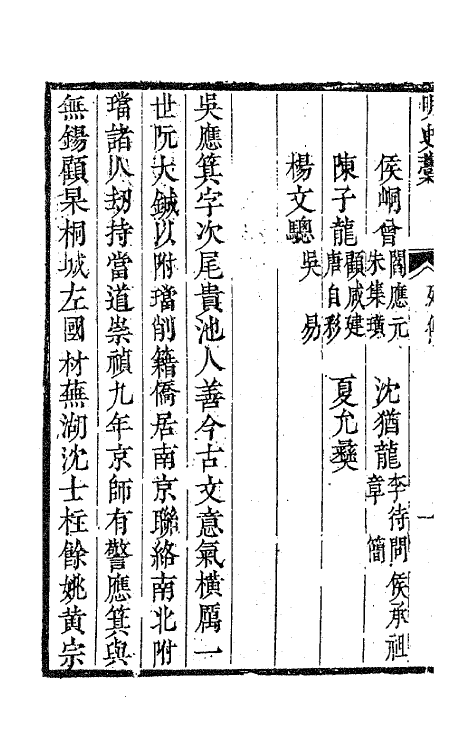 明史藁
一
侯峒曾 閻應元 朱集璜 沈猶龍 李待問 章簡 侯承祖
陳子龍 顧咸建 唐自彩 夏允彝
楊文驄 吳易
吳應箕字次尾貴池人善今古文意氣橫厲一
世阮大鋮以附璫削籍僑居南京聯絡南北附
璫諸人劫持當道崇禎九年京師有警應箕與
無錫顧杲桐城左國材蕪湖沈士柱餘姚黃宗